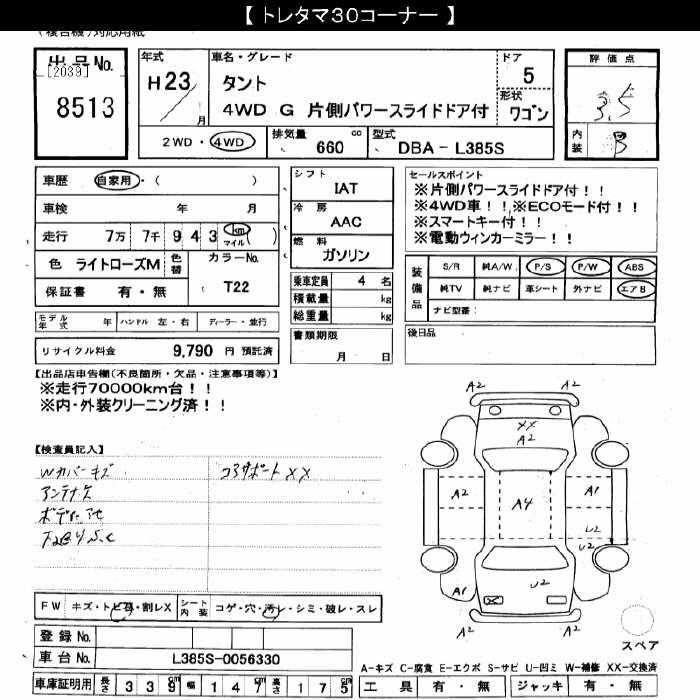 【 トレタマ30コーナー 】
(複合機)対応用紙
出品No.
[2039]
8513
年式
H23
月
車名・グレード
タント
4WD G 片側パワースライドドア付
ドア
5
形状
ワゴン
2WD・4WD
排気量
660 cc
型式
DBA－L385S
評価点
3.5
内装
B
車歴 自家用・( )
車検 年 月
走行 7万 7千 9 4 3 km マイル ( )
色 ライトローズM 色替
カラーNo.
T22
保証書 有・無
シフト
IAT
冷房
AAC
燃料
ガソリン
乗車定員 4 名
積載量 kg
総重量 kg
書類期限
月 日
セールスポイント
※片側パワースライドドア付！！
※4WD車！！※ECOモード付！！
※スマートキー付！！
※電動ウィンカーミラー！！
装備品
S/R 純A/W P/S P/W ABS
純TV 純ナビ 革シート 外ナビ エアB
ナビ型番:
後日品
モデル年式 年 ハンドル 左・右 ディーラー・並行
リサイクル料金 9,790 円 預託済
【出品店申告欄(不良箇所・欠品・注意事項等)】
※走行70000km台！！
※内・外装クリーニング済！！
【検査員記入】
Wカバーキズ
コアサポートXX
アンテナ欠
A2 A2
XX
A2
A2 A4 A1
U2
U2
U2
A1
X
A2 A2
FW キズ・トビ石・割レX
シート内装 コゲ・穴・汚レ・シミ・破レ・スレ
登録No.
車台No. L385S-0056330
車庫証明用 長さ 3 3 9 cm 幅 1 4 7 cm 高さ 1 7 5 cm
スペア
A－キズ C－腐食 E－エクボ S－サビ U－凹ミ W－補修 XX－交換済
工具 有・無 ジャッキ 有・無